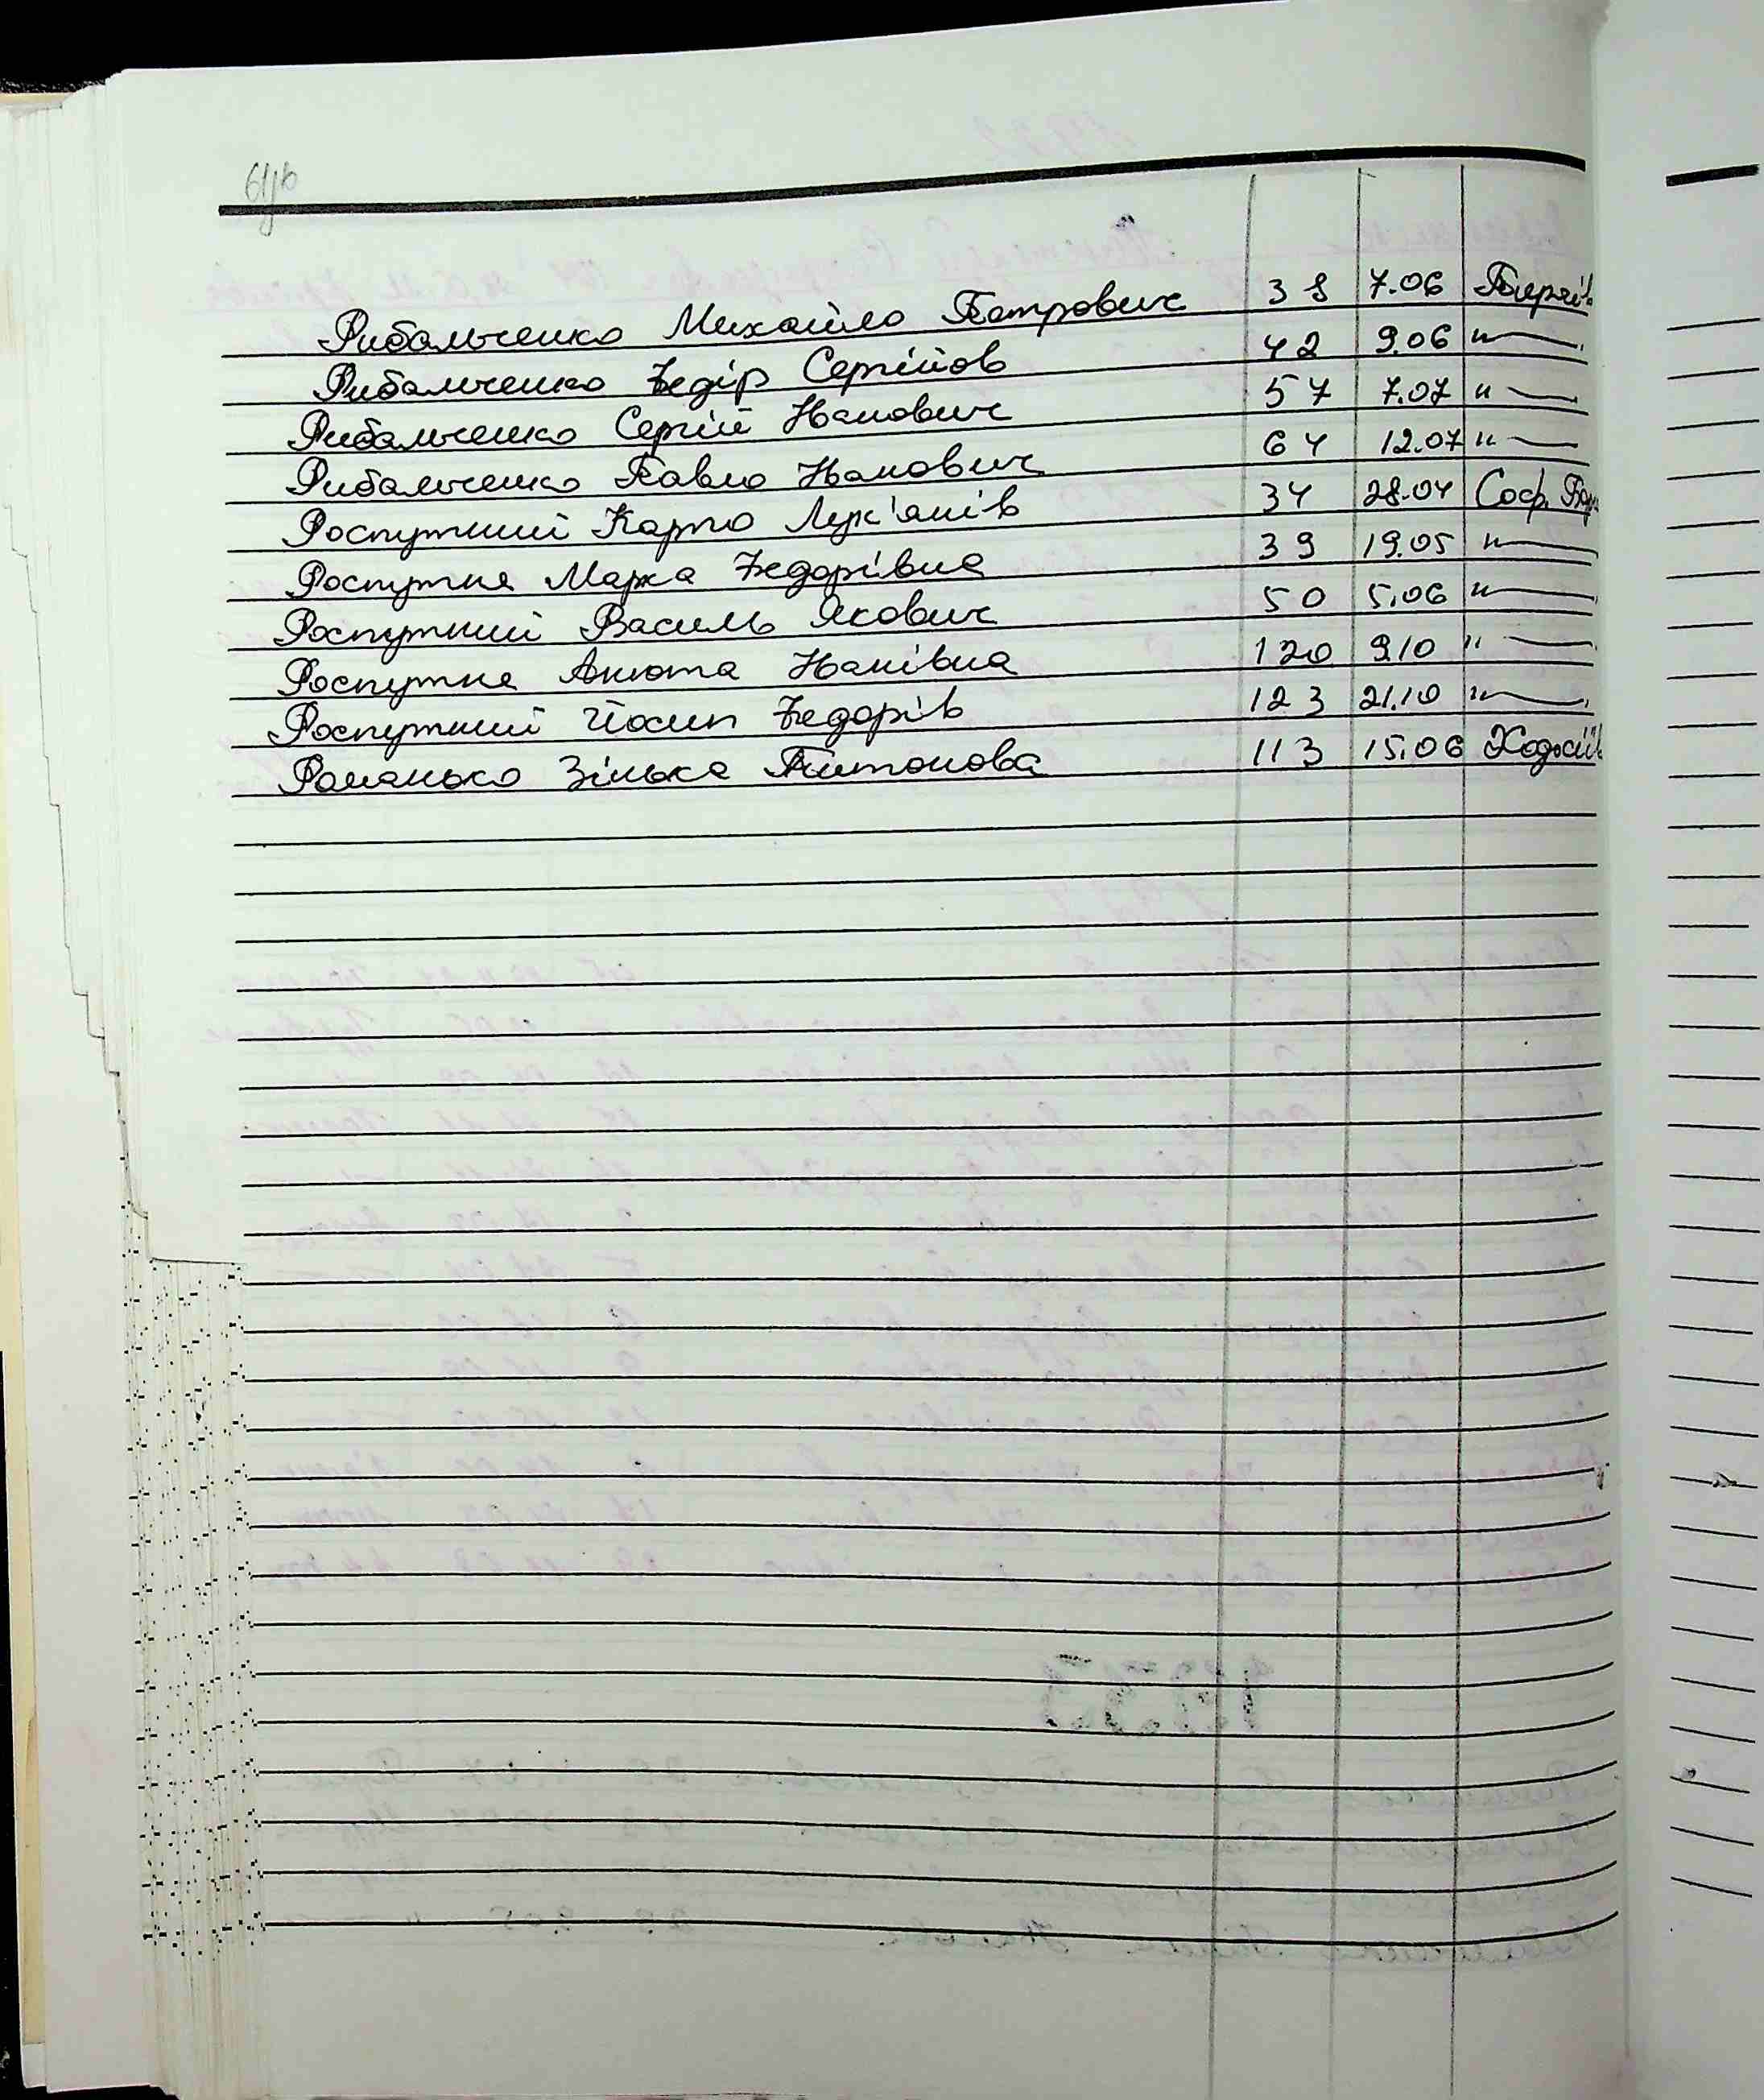 Рибальченко Михайло Петрович 38 7.06
Рибальченко Федір Сергійов 42 9.06 "—
Рибальченко Сергій Іванович 57 7.07 "—
Рибальченко Павло Іванович 64 12.07 "—
Роспутний Карпо Лук'янів 34 28.04 Соф.
Роспутня Марка Федорівна 39 19.05 "—
Роспутний Василь Якович 50 5.06 "—
Роспутня Анюта Іванівна 120 9.10 "—
Роспутний Йосип Федорів 123 21.10 "—
Романько Зінька Антонова 113 15.06